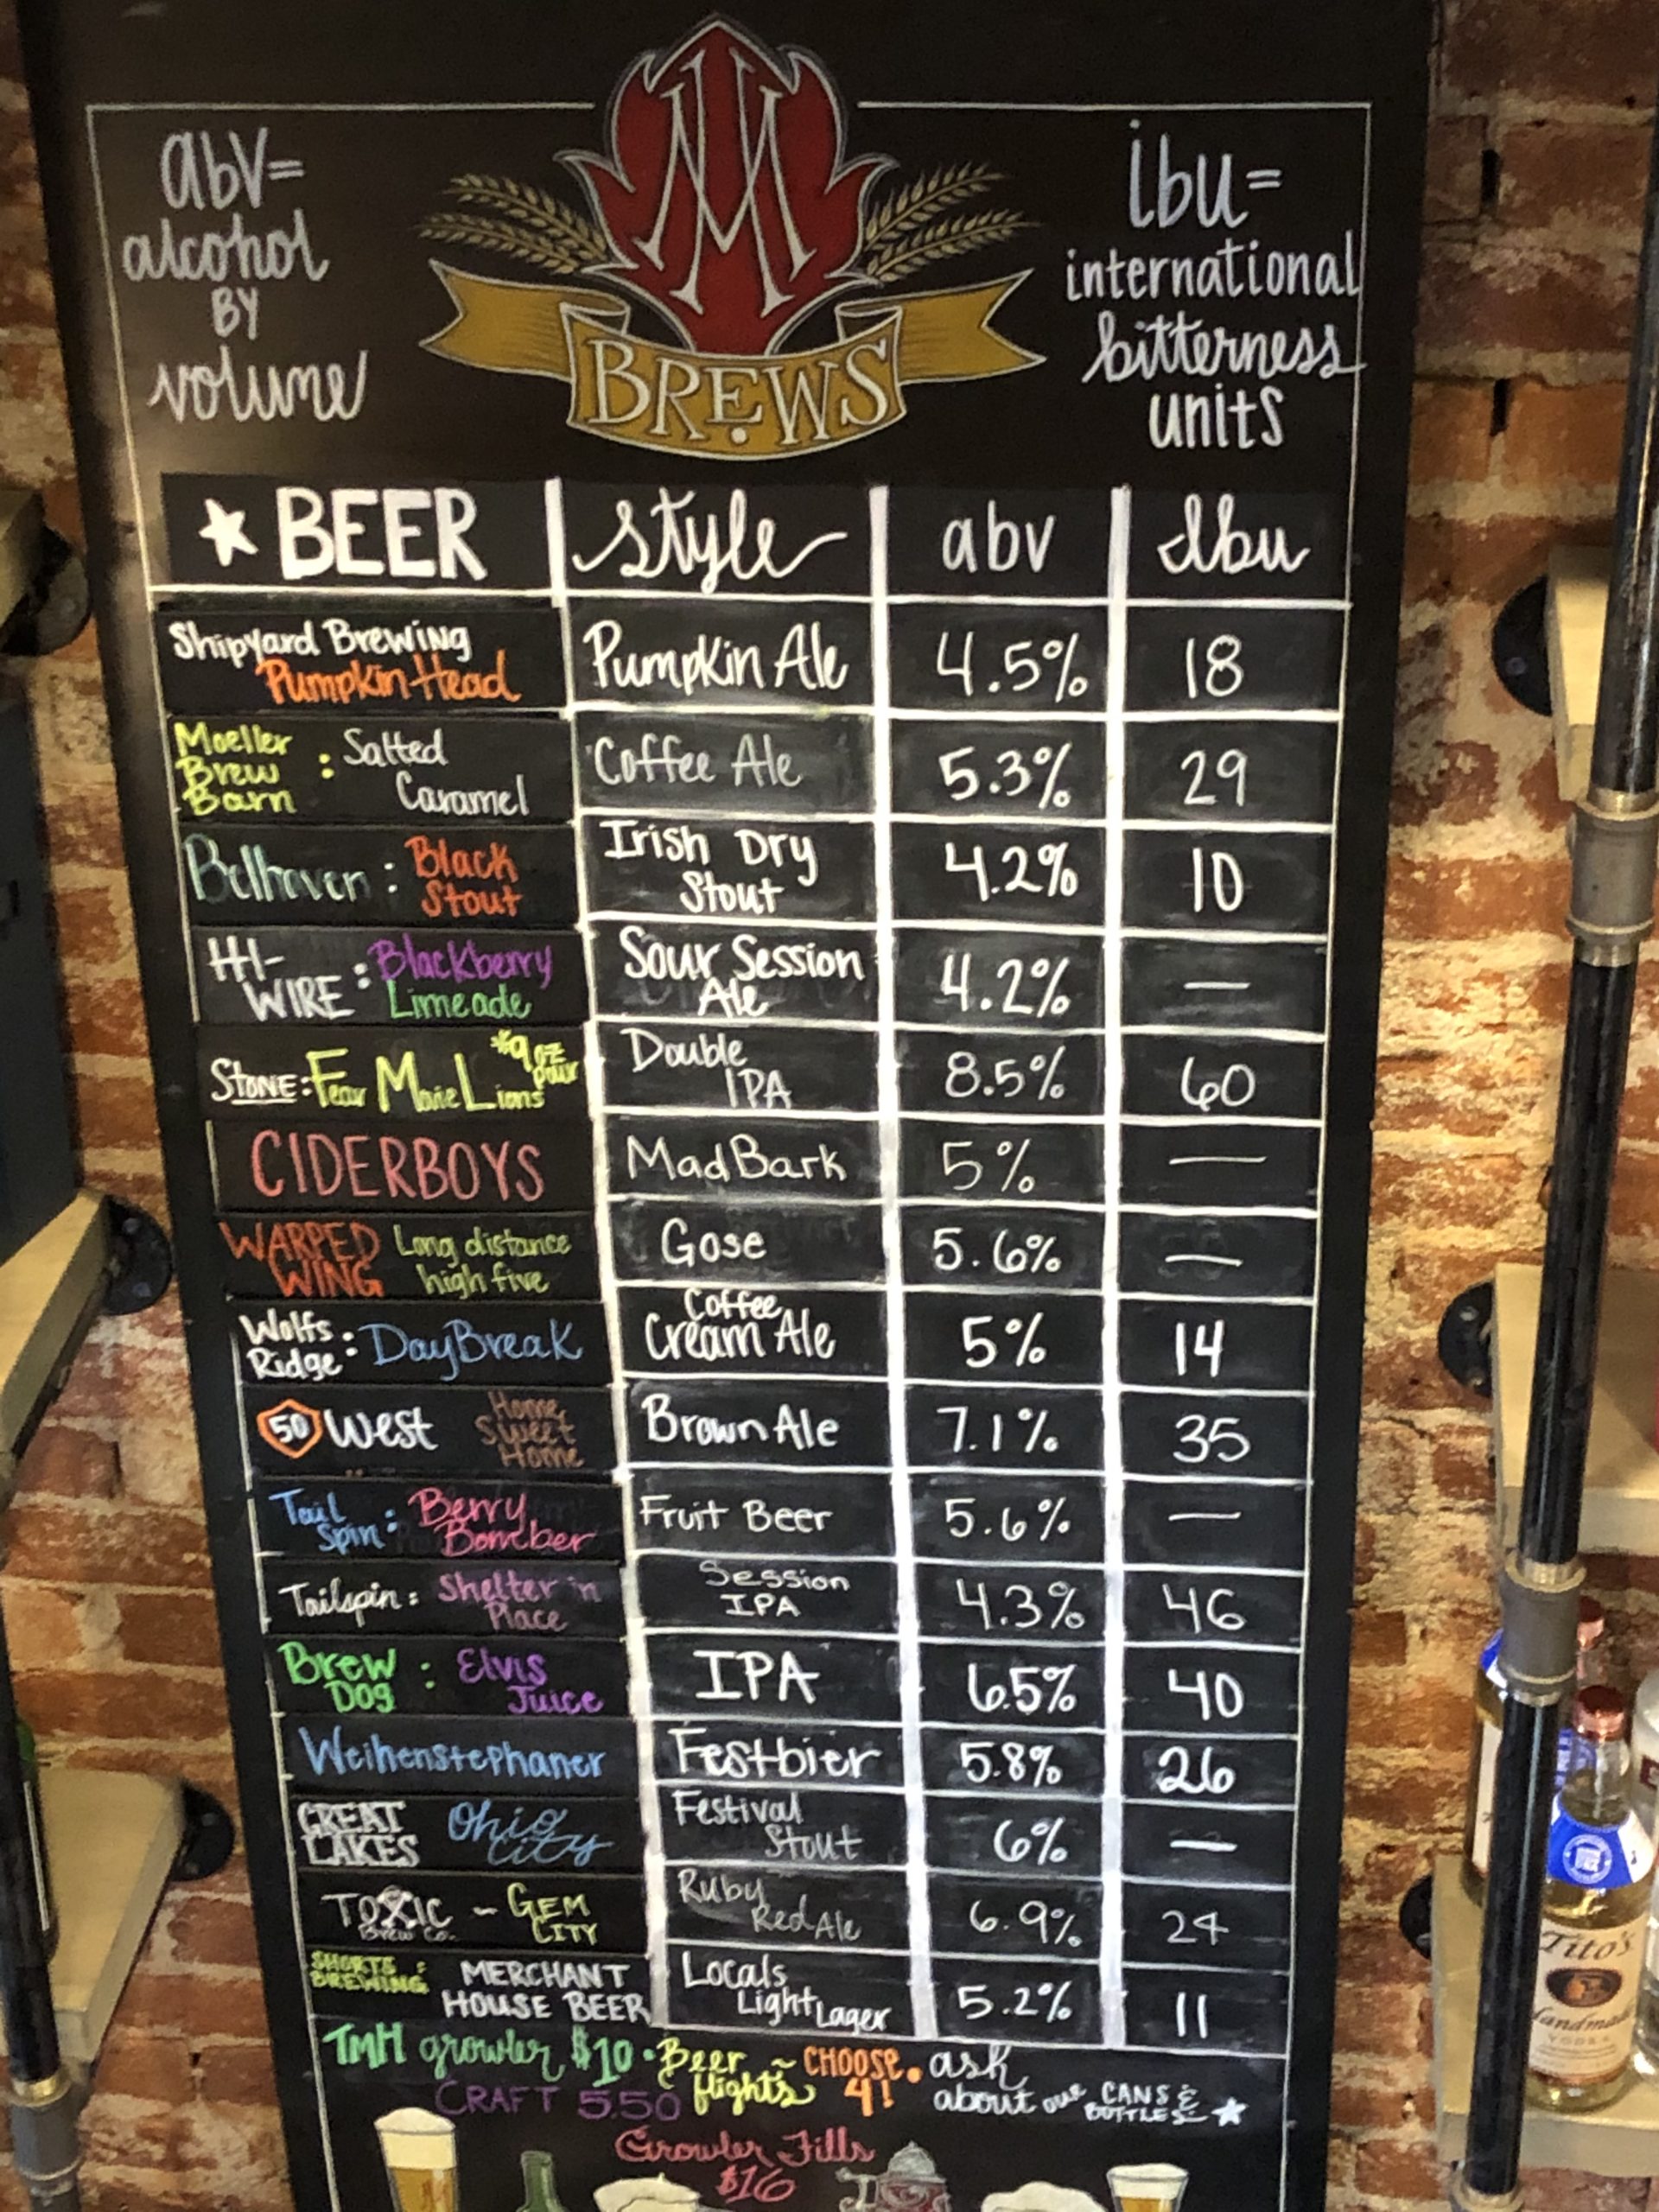 abv=
alcohol
BY
volume
M
BREWS
ibu=
international
bitterness
units
★ BEER style abv Ibu
Shipyard Brewing
Pumpkin Head
Pumpkin Ale 4.5% 18
Moeller
Brew
Barn
: Salted
Caramel
Coffee Ale 5.3% 29
Belhaven: Black
Stout
Irish Dry
Stout
4.2% 10
HI-
WIRE
: Blackberry
Limeade
Sour Session
Ale
4.2% —
STONE: Fear Movie Lions
*9 oz
pour
Double
IPA
8.5% 60
CIDERBOYS Mad Bark 5% —
WARPED
WING
Long distance
high five
Gose 5.6% —
Wolfs
Ridge
: DayBreak
Coffee
Cream Ale
5% 14
50 West
Home
Sweet
Home
Brown Ale 7.1% 35
Tail
Spin
: Berry
Bomber
Fruit Beer 5.6% —
Tailspin: Shelter in
Place
Session
IPA
4.3% 46
Brew
Dog
: Elvis
Juice
IPA 6.5% 40
Weihenstephaner Festbier 5.8% 26
GREAT
LAKES
Ohio
City
Festival
Stout
6% —
TOXIC
Brew Co.
~ GEM
CITY
Ruby
Red Ale
6.9% 24
SHORTS
BREWING
: MERCHANT
HOUSE BEER
Locals
Light Lager
5.2% 11
TMH growler $10 • Beer
flights
~ CHOOSE
4!
• ask
about our CANS &
BOTTLES ★
CRAFT 5.50
Growler Fills
$16
Tito's
Handmade
VODKA